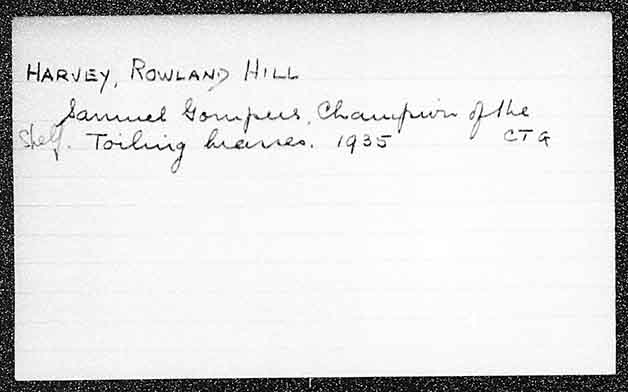 HARVEY, ROWLAND HILL
Samuel Gompers, Champion of the
Shelf. Toiling Masses. 1935 CTG